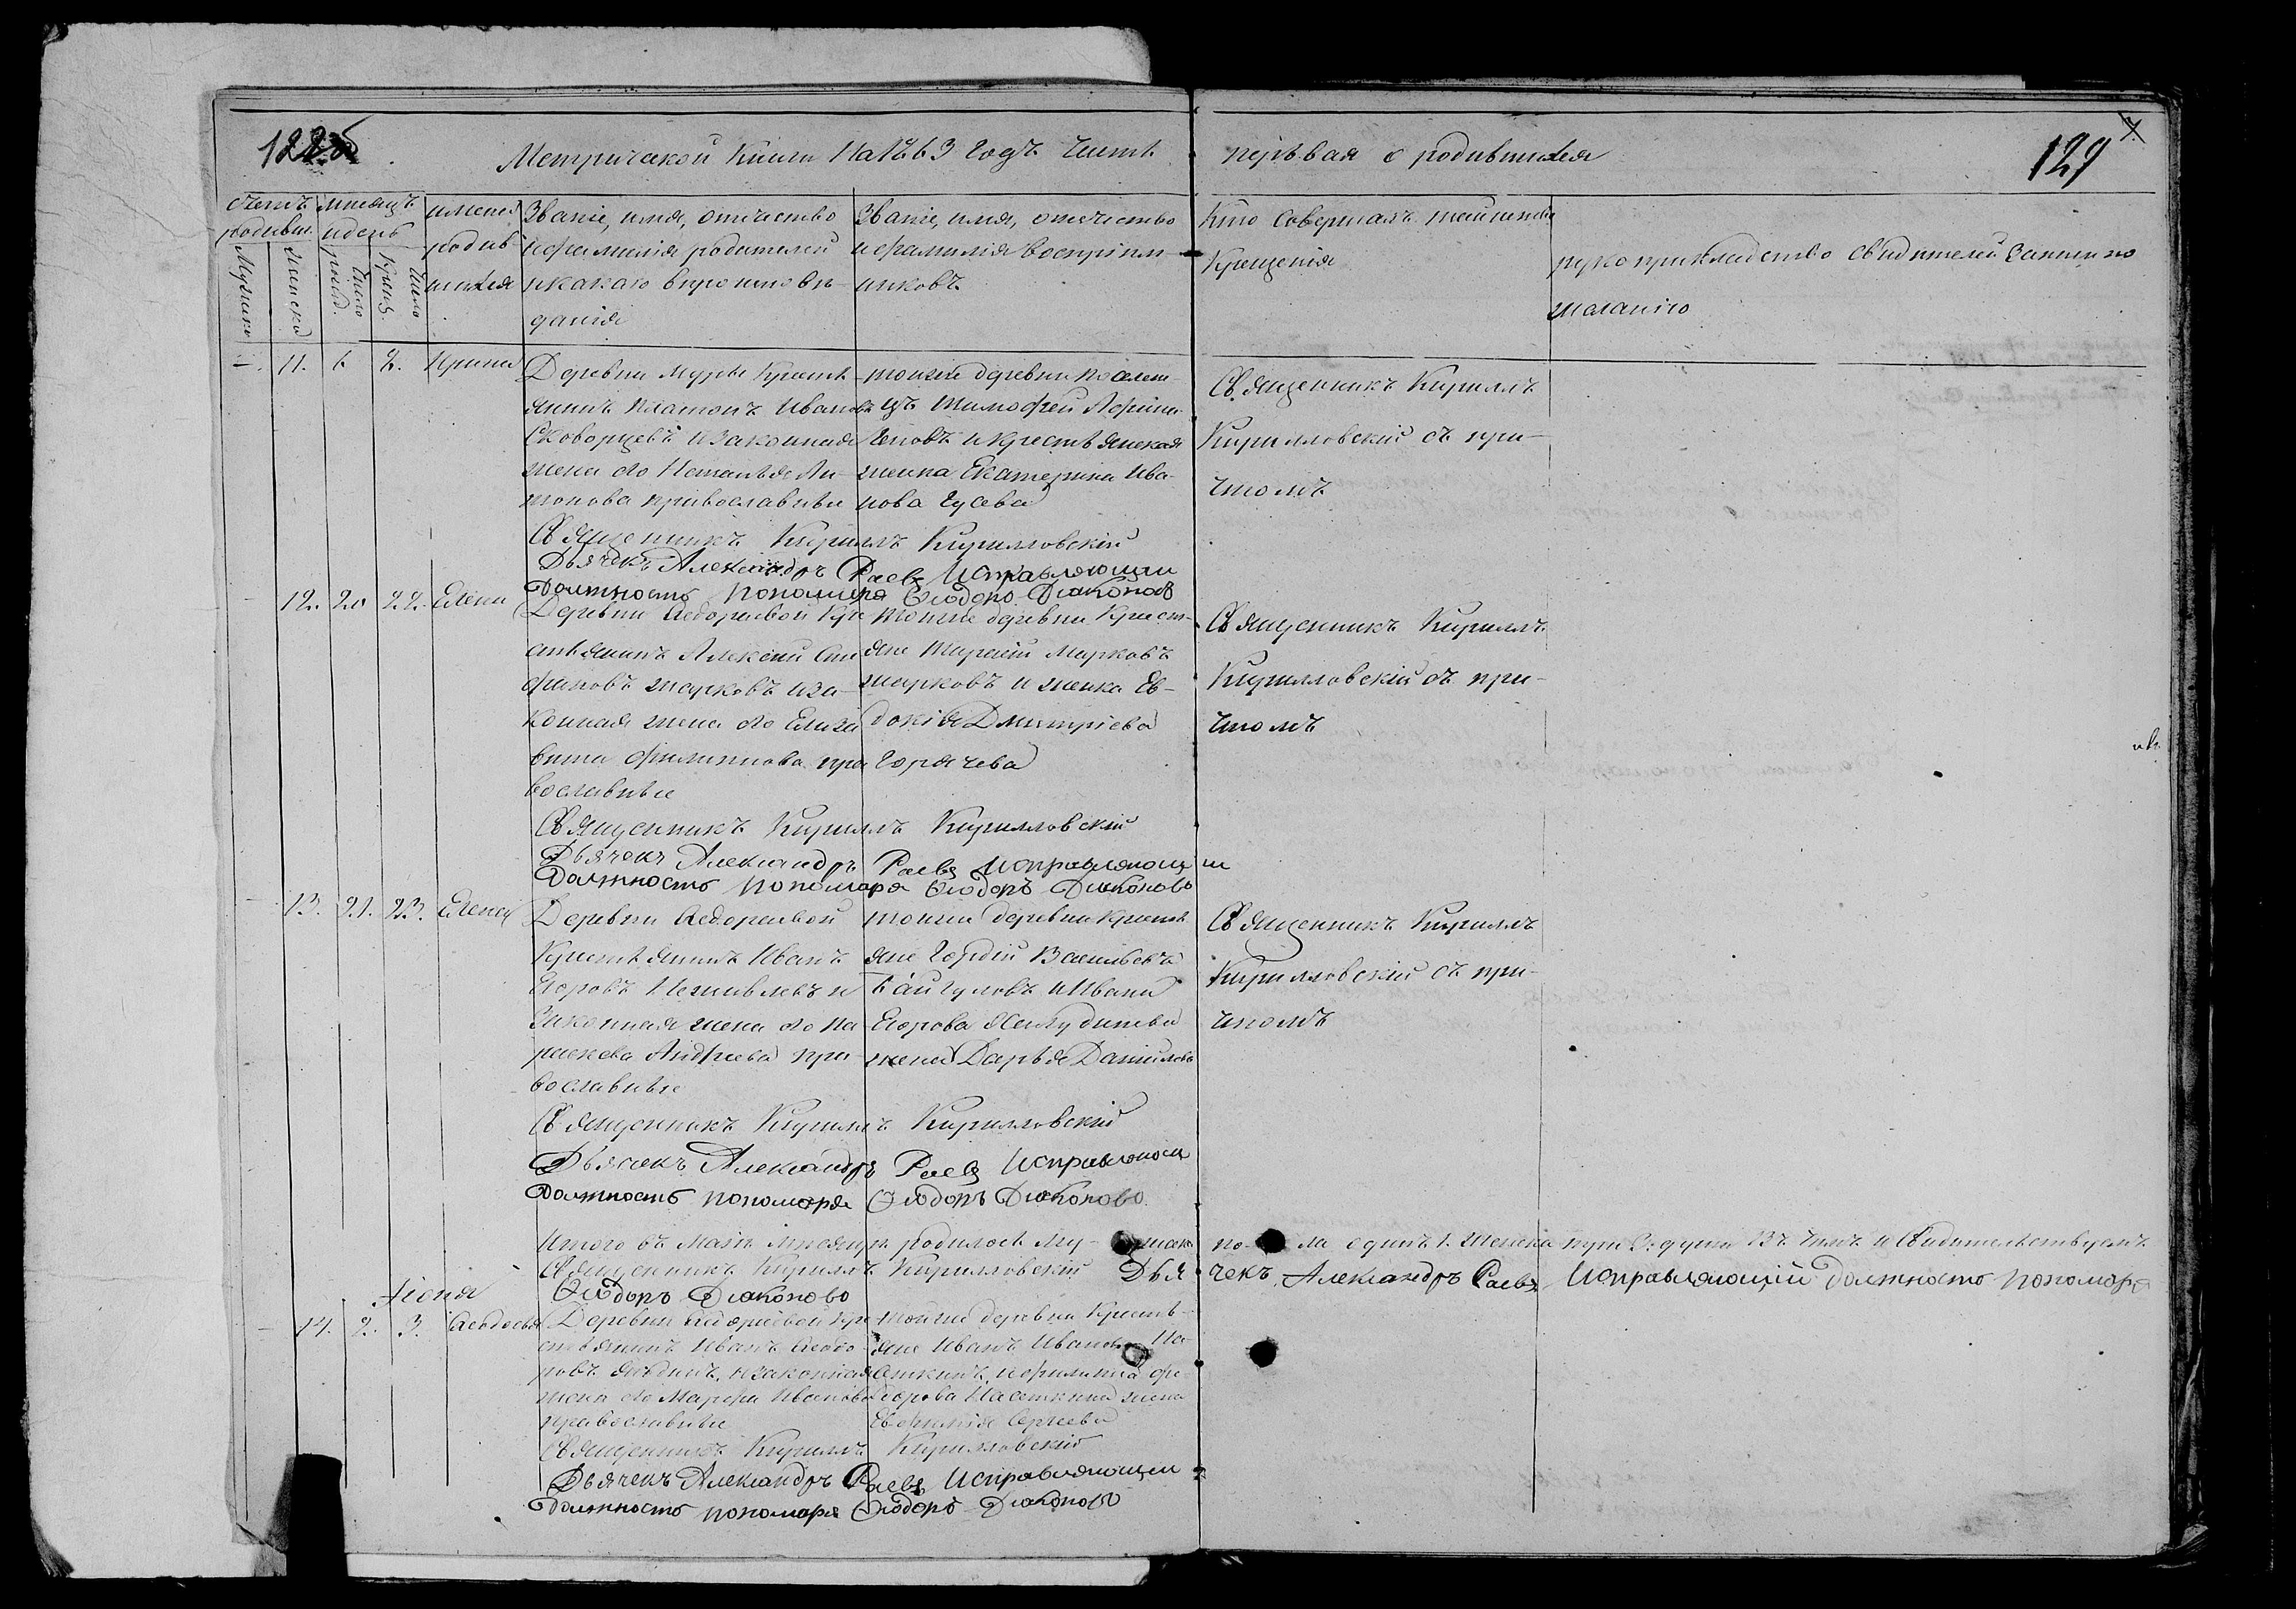 Метрической Книги На 1863 Годъ Часть первая о родившихся
129
счетъ родивш. месяцъ и день
Мужика Женска Число рожд. Число Крещ.
имена родившихся
Званіе, имя, отчество
и фамилія родителей
и какаго вѣроисповѣ-
данія
Званіе, имя, отчество
и фамилія воспріем-
никовъ
Кто Совершалъ таинство
Крещенія
рукоприкладство свидетелей записи по
желанію
11. 6 8. Ирина
Деревни Кресть-
янинъ Платонъ Ивановъ
Скворцевъ и законная
жена его Наталья Ан-
тонова православные
тойже деревни Поселен-
цъ Тимофей
и крестьянская
женка Екатерина Ива-
нова Гусева
Священникъ Кириллъ
Кирилловскій съ при-
чтомъ
Священникъ Кириллъ Кирилловскій
Дьячекъ Александръ Раевъ Исправляющій
Должность пономаря Ѳеодоръ Діаконовъ
12. 20 22. Елена
Деревни Ѳедоровой Кре
стьянинъ Алексей Сте
фановъ Марковъ и за-
конная жена его Елиза
вета Филиппова пра
вославные
тойже деревни Крест-
яне Тарасій Марковъ
Марковъ и женка Ев-
докія Дмитріева
Горячева
Священникъ Кириллъ
Кирилловскій съ при-
чтомъ
Священникъ Кириллъ Кирилловскій
Дьячекъ Александръ Раевъ Исправляющій
Должность пономаря Ѳеодоръ Діаконовъ
13. 21. 23. Елена
Деревни Ѳедоровой
Крестьянинъ Иванъ
Егоровъ и
Законная жена его Па-
раскева Андреева пра-
вославные
тойже деревни Кресть
яне Гордій Васильевъ
Байгуловъ и Ивана
Егорова
жена Дарья Данилова
Священникъ Кириллъ
Кирилловскій съ при-
чтомъ
Священникъ Кириллъ Кирилловскій
Дьячекъ Александръ Раевъ Исправляющ
Должность пономаря Ѳеодоръ Діаконовъ
Итого въ Маѣ месяцѣ родилось му- пола одинъ 1. Женска души Въ чемъ и Свидетельствуемъ
Священникъ Кириллъ Кирилловскій Дьячекъ Александръ Раевъ Исправляющій Должность пономаря
Ѳеодоръ Діаконовъ
Іюня
14. 2. 3. Авдотья
Деревни Ѳедоровой Кре
стьянинъ Иванъ Ѳедо
ровъ и законная
жена его Марфа Иванова
православные
тойже деревни Кресть-
яне Иванъ Ивановъ
жена
Сергеева
Священникъ Кириллъ Кирилловскій
Дьячекъ Александръ Раевъ Исправляющій
Должность пономаря Ѳеодоръ Діаконовъ